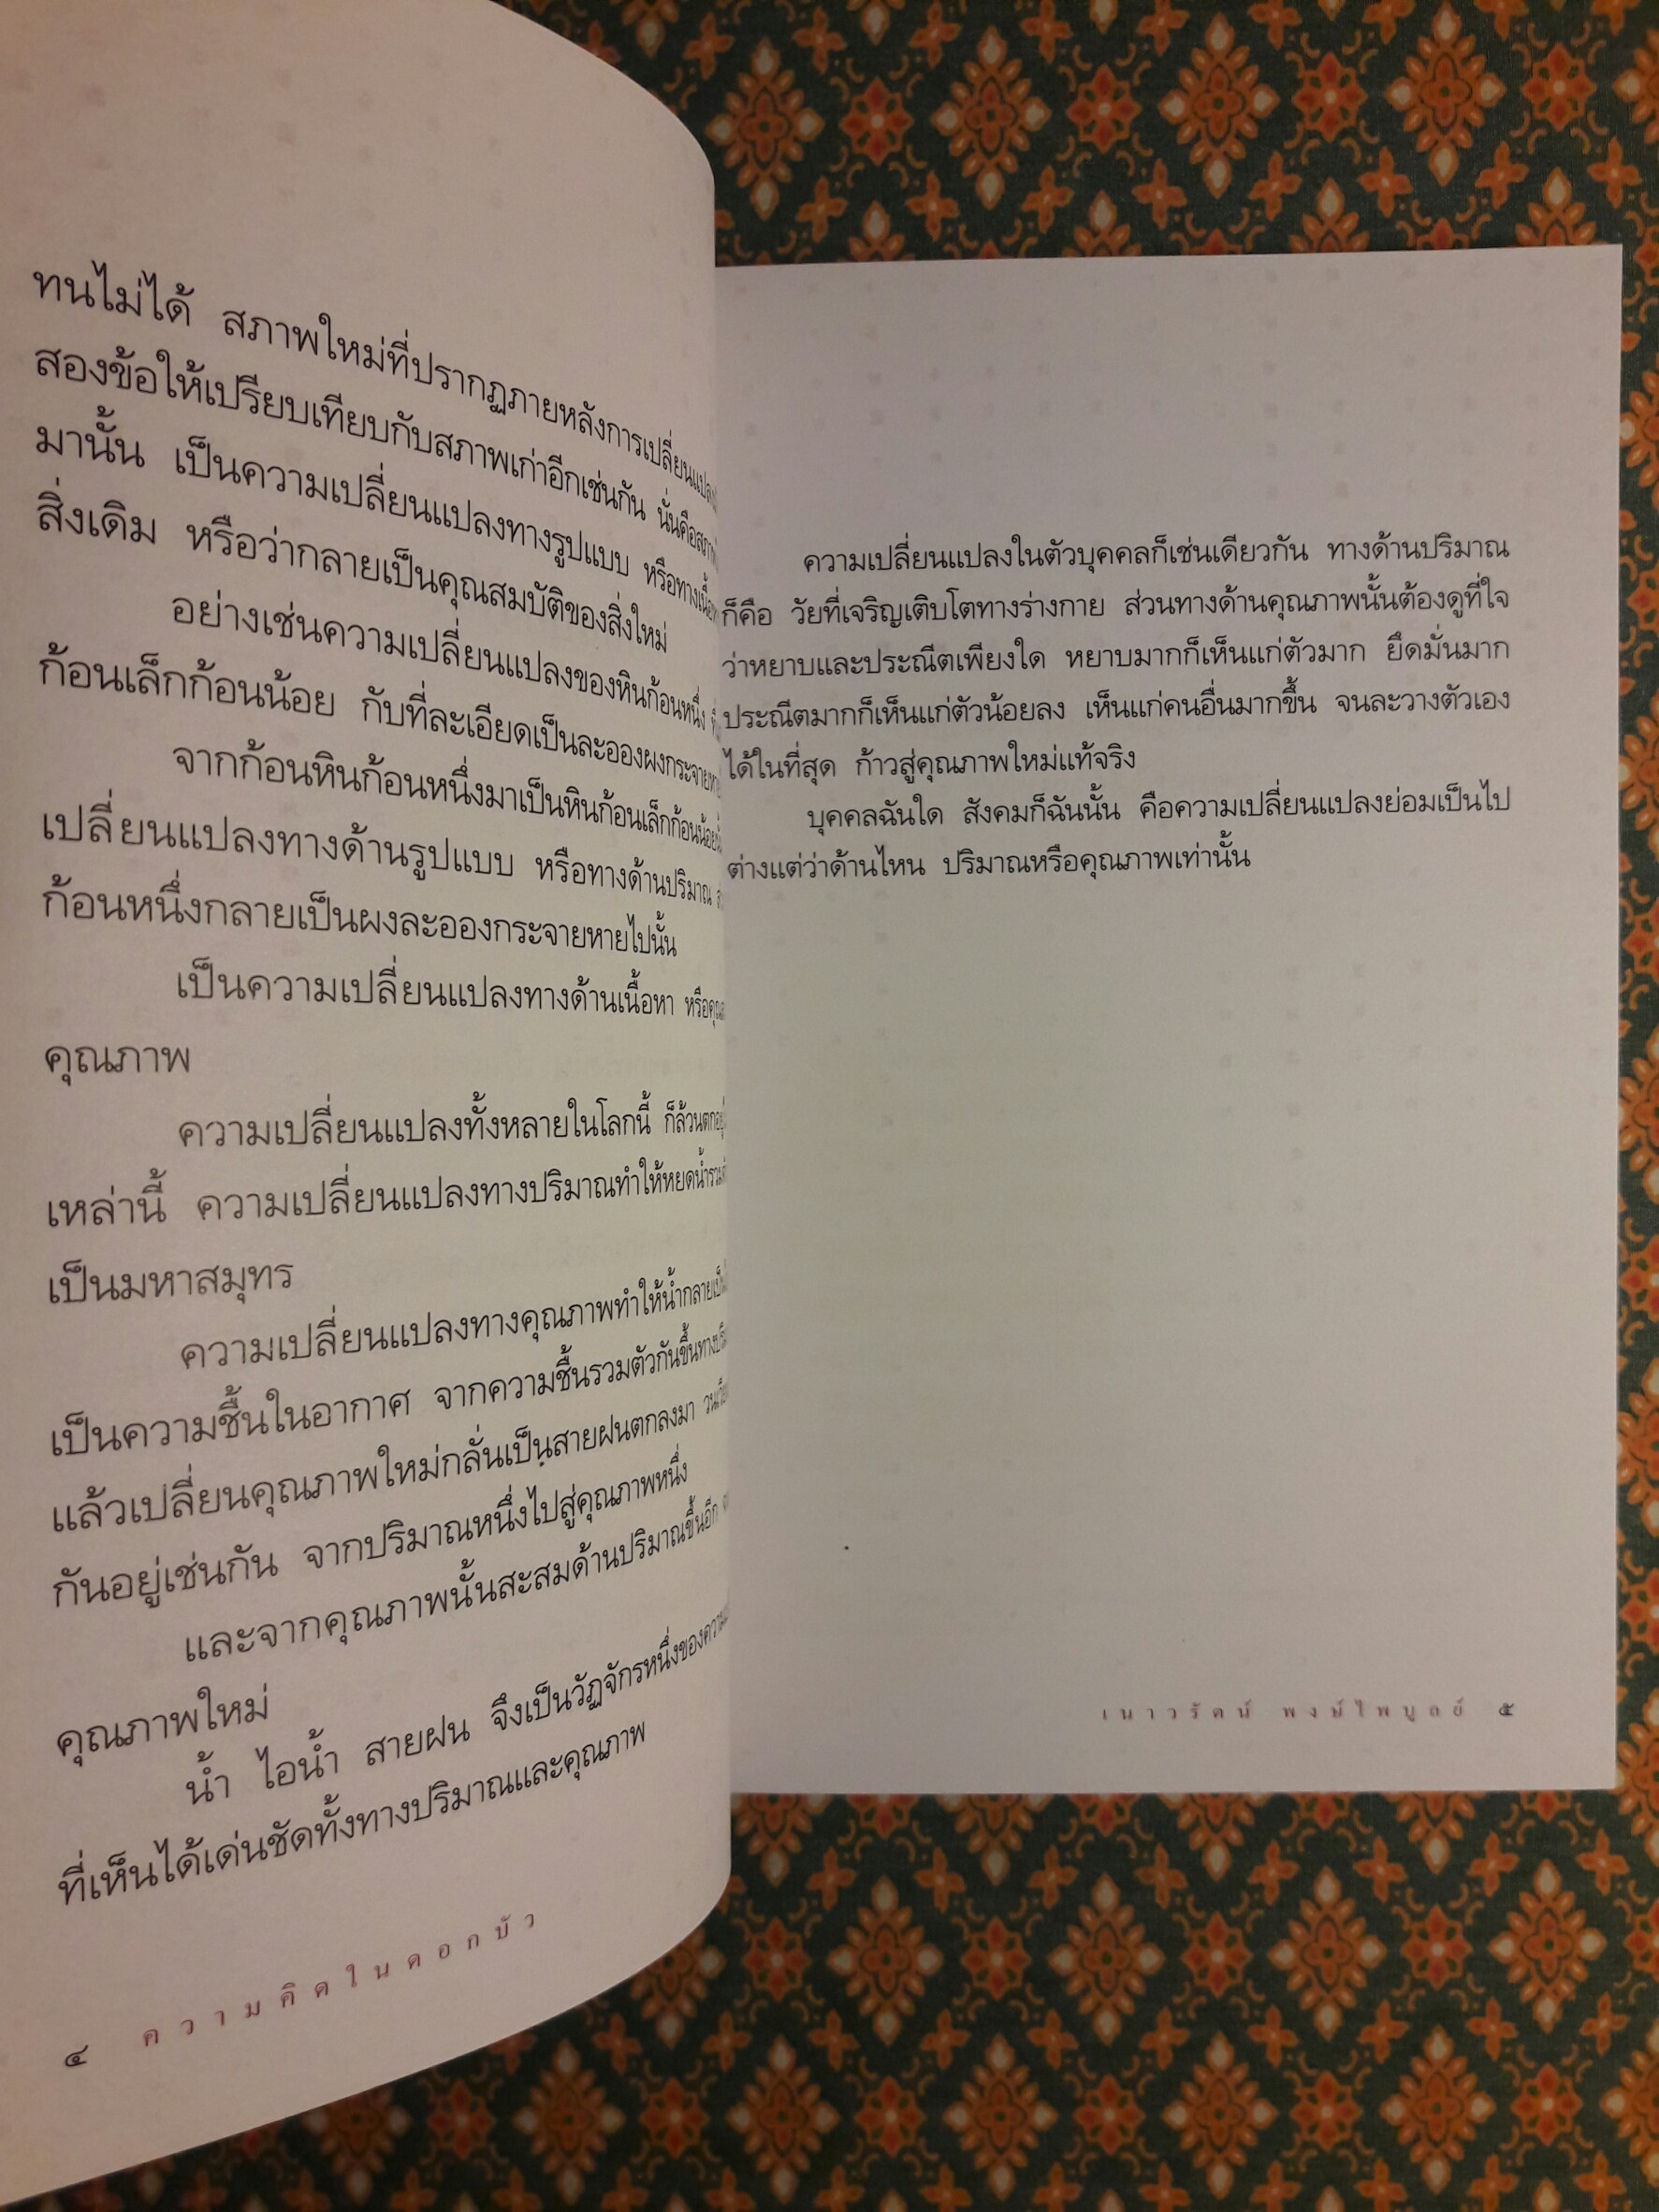 ทนไม่ได้ สภาพใหม่ที่ปรากฏภายหลังการเปลี่ยนแปลง
สองข้อให้เปรียบเทียบกับสภาพเก่าอีกเช่นกัน นั่นคือสภาพ
มานั้น เป็นความเปลี่ยนแปลงทางรูปแบบ หรือทาง
สิ่งเดิม หรือว่ากลายเป็นคุณสมบัติของสิ่งใหม่
อย่างเช่นความเปลี่ยนแปลงของหินก้อนหนึ่ง
ก้อนเล็กก้อนน้อย กับที่ละเอียดเป็นละอองผงกระจาย
จากก้อนหินก้อนหนึ่งมาเป็นหินก้อนเล็กก้อนน้อย
เปลี่ยนแปลงทางด้านรูปแบบ หรือทางด้านปริมาณ
ก้อนหนึ่งกลายเป็นผงละอองกระจายหายไปนั้น
เป็นความเปลี่ยนแปลงทางด้านเนื้อหา
คุณภาพ
ความเปลี่ยนแปลงทั้งหลายในโลกนี้ ก็ล้วนตก
เหล่านี้ ความเปลี่ยนแปลงทางปริมาณทำให้หยดน้ำรวม
เป็นมหาสมุทร
ความเปลี่ยนแปลงทางคุณภาพทำให้น้ำกลาย
เป็นความชื้นในอากาศ จากความชื้นรวมตัวกันขึ้นทาง
แล้วเปลี่ยนคุณภาพใหม่กลั่นเป็นสายฝนตกลงมา
กันอยู่เช่นกัน จากปริมาณหนึ่งไปสู่คุณภาพหนึ่ง
และจากคุณภาพนั้นสะสมด้านปริมาณขึ้นอีก
คุณภาพใหม่
น้ำ ไอน้ำ สายฝน จึงเป็นวัฏจักรหนึ่งของ
ที่เห็นได้เด่นชัดทั้งทางปริมาณและคุณภาพ
๔ ความคิดในดอกบัว
ความเปลี่ยนแปลงในตัวบุคคลก็เช่นเดียวกัน ทางด้านปริมาณ
ก็คือ วัยที่เจริญเติบโตทางร่างกาย ส่วนทางด้านคุณภาพนั้นต้องดูที่ใจ
ว่าหยาบและประณีตเพียงใด หยาบมากก็เห็นแก่ตัวมาก ยึดมั่นมาก
ประณีตมากก็เห็นแก่ตัวน้อยลง เห็นแก่คนอื่นมากขึ้น จนละวางตัวเอง
ได้ในที่สุด ก้าวสู่คุณภาพใหม่แท้จริง
บุคคลฉันใด สังคมก็ฉันนั้น คือความเปลี่ยนแปลงย่อมเป็นไป
ต่างแต่ว่าด้านไหน ปริมาณหรือคุณภาพเท่านั้น
เนาวรัตน์ พงษ์ไพบูลย์ ๕